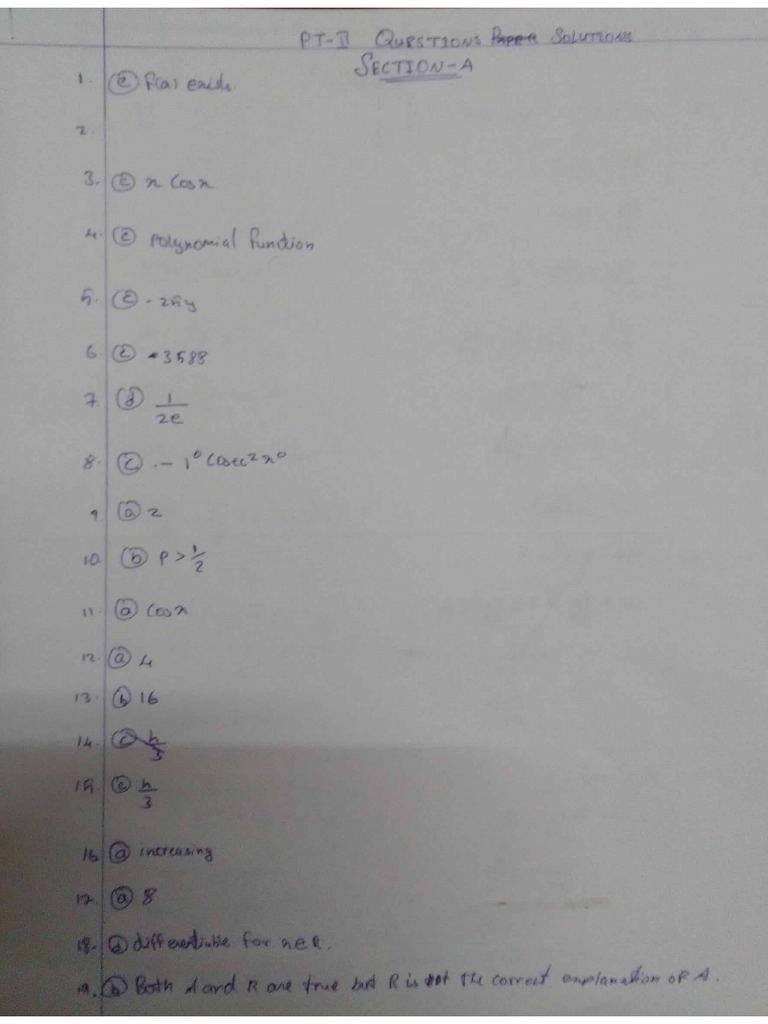 PT-II QUESTIONS SOLUTIONS
SECTION-A
1. (c) f(a) exists.
2.
3. (c) x cosx
4. (c) Polynomial function
5. (c) - 25y
6. (c) 3588
7. (d) 1/2e
8. (c) - 1° cosec²x°
9. (a) 2
10. (b) P > 1/2
11. (a) cosx
12. (a) 4
13. (b) 16
14.
15. (c) h/3
16. (a) increasing
17. (a) 8
18. (d) differentiable for x∈R.
19. (b) Both A and R are true but R is not the correct explanation of A.